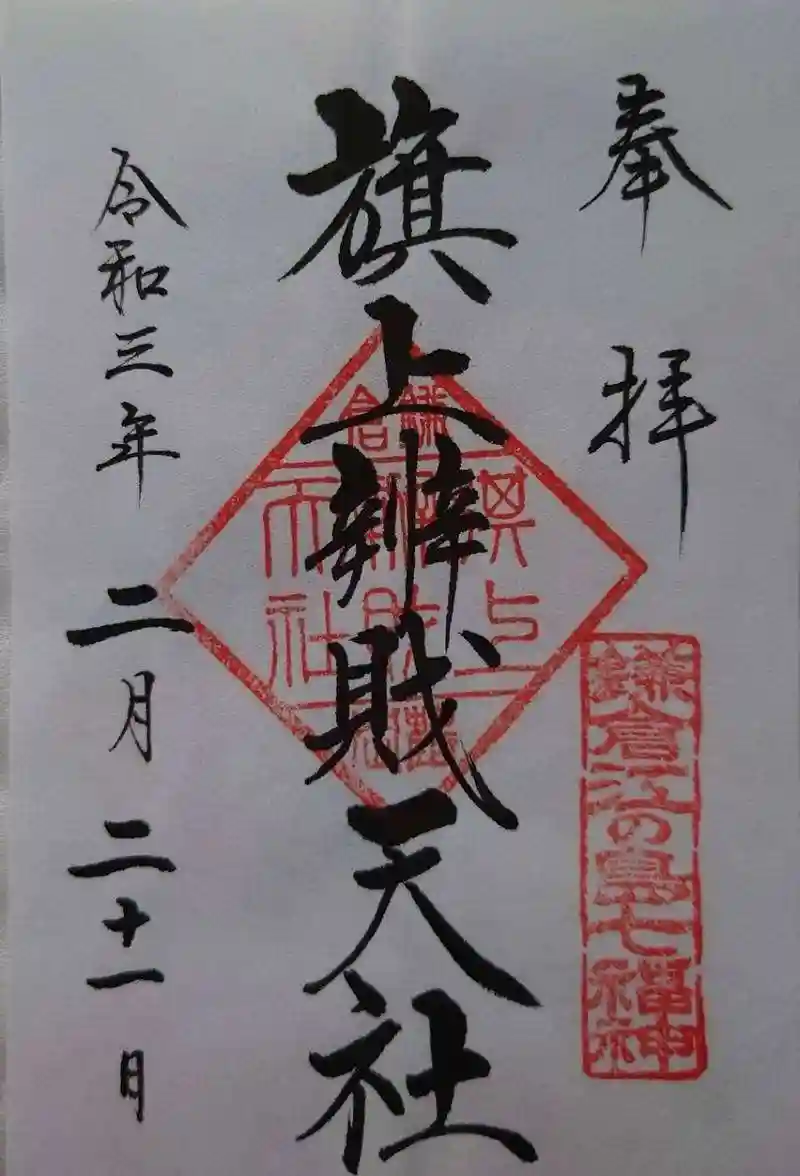 奉拝
鎌倉江の島七福神
旗上辨財天社
鎌倉
旗上
辨財
天社
令和三年二月二十一日